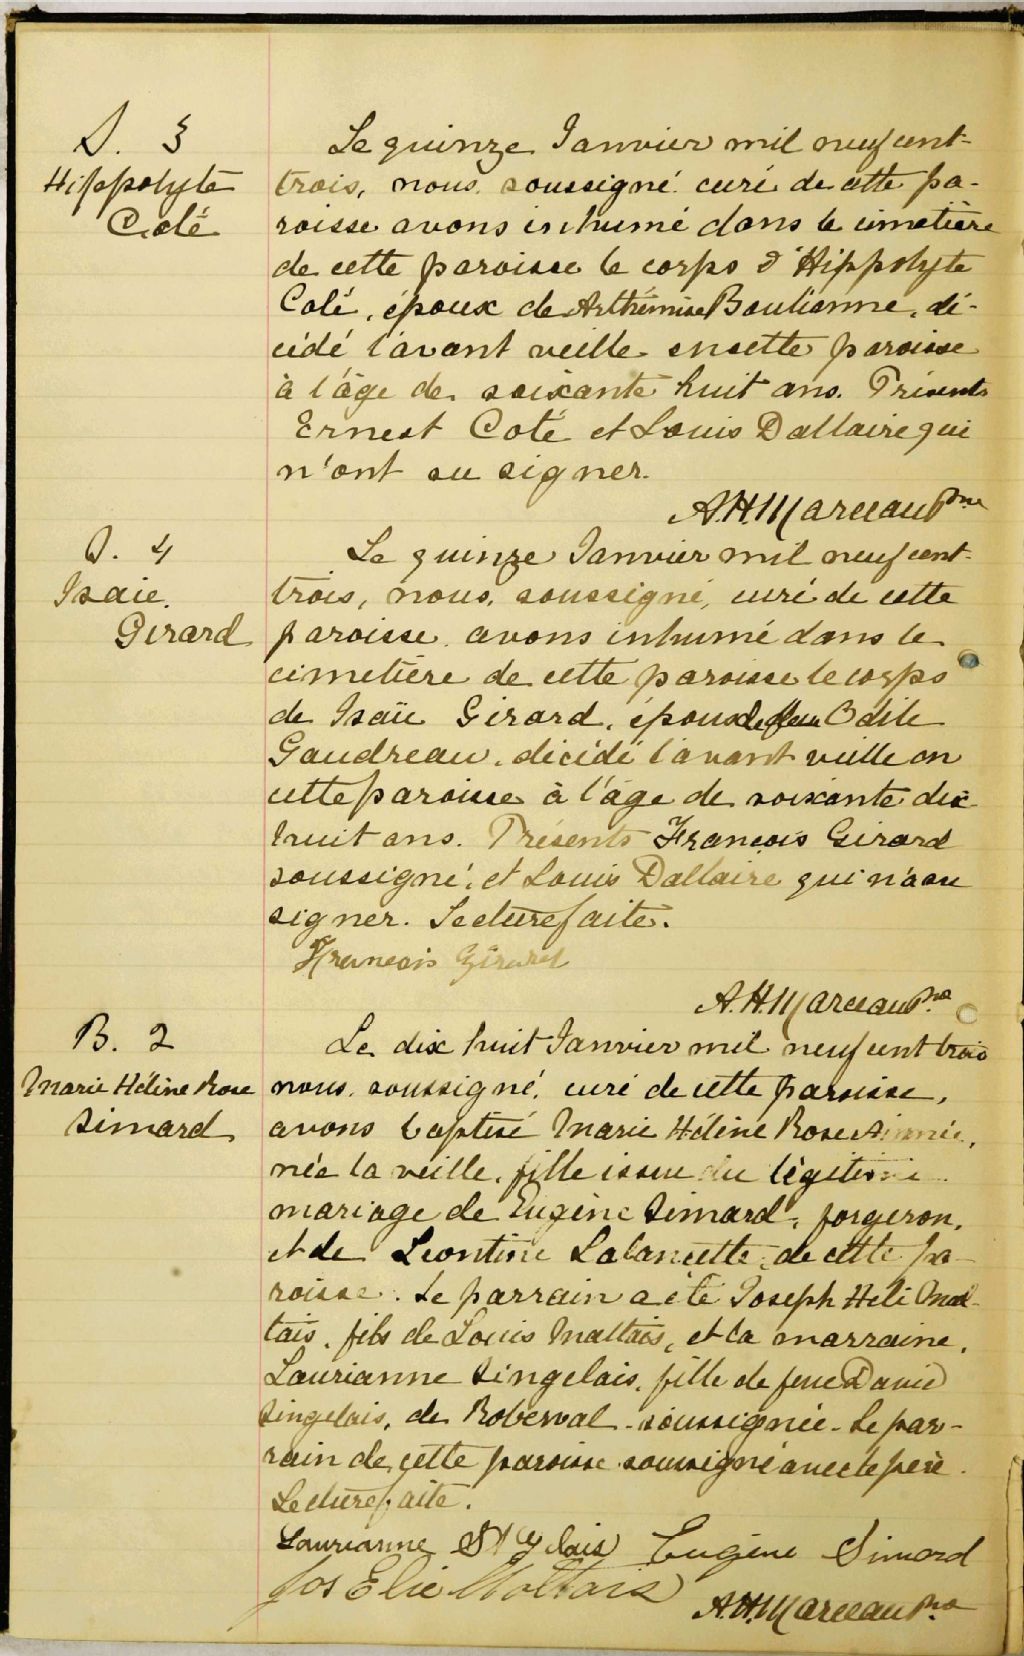 S. 3
Hippolyte
Coté
Le quinze Janvier mil neuf cent-
trois, nous soussigné curé de cette pa-
roisse avons inhumé dans le cimetière
de cette paroisse le corps d'Hippolyte
Coté, époux de Arthémise Boulianne, dé-
cédé l'avant veille en cette paroisse
à l'âge de soixante huit ans. Présents
Ernest Coté et Louis Dallaire qui
n'ont su signer.
A.H. Marceau Ptre
S. 4
Isaïe
Girard
Le quinze Janvier mil neuf cent-
trois, nous, soussigné, curé de cette
paroisse avons inhumé dans le
cimetière de cette paroisse le corps
de Isaïe Girard, époux de feu Odile
Gaudreau, décédé l'avant veille en
cette paroisse à l'âge de soixante dix
huit ans. Présents François Girard
soussigné, et Louis Dallaire qui n'a su
signer. Lecture faite.
Francois Girard
A.H. Marceau Ptre
B. 2
Marie Hélène Rose
Simard
Le dix huit Janvier mil neuf cent trois
nous soussigné, curé de cette paroisse,
avons baptisé Marie Hélène Rose Aimée,
née la veille, fille issue du légitime
mariage de Eugène Simard, forgeron,
et de Léontine Lalancette, de cette pa-
roisse. Le parrain a été Joseph Héli Mal-
tais, fils de Louis Maltais, et la marraine,
Laurianne Singelais, fille de feu David
Singelais, de Roberval soussignée. Le par-
rain de cette paroisse soussigné avec le père.
Lecture faite.
Laurianne St Gelais Eugène Simard
Jos Elie Maltais
A.H. Marceau Ptre